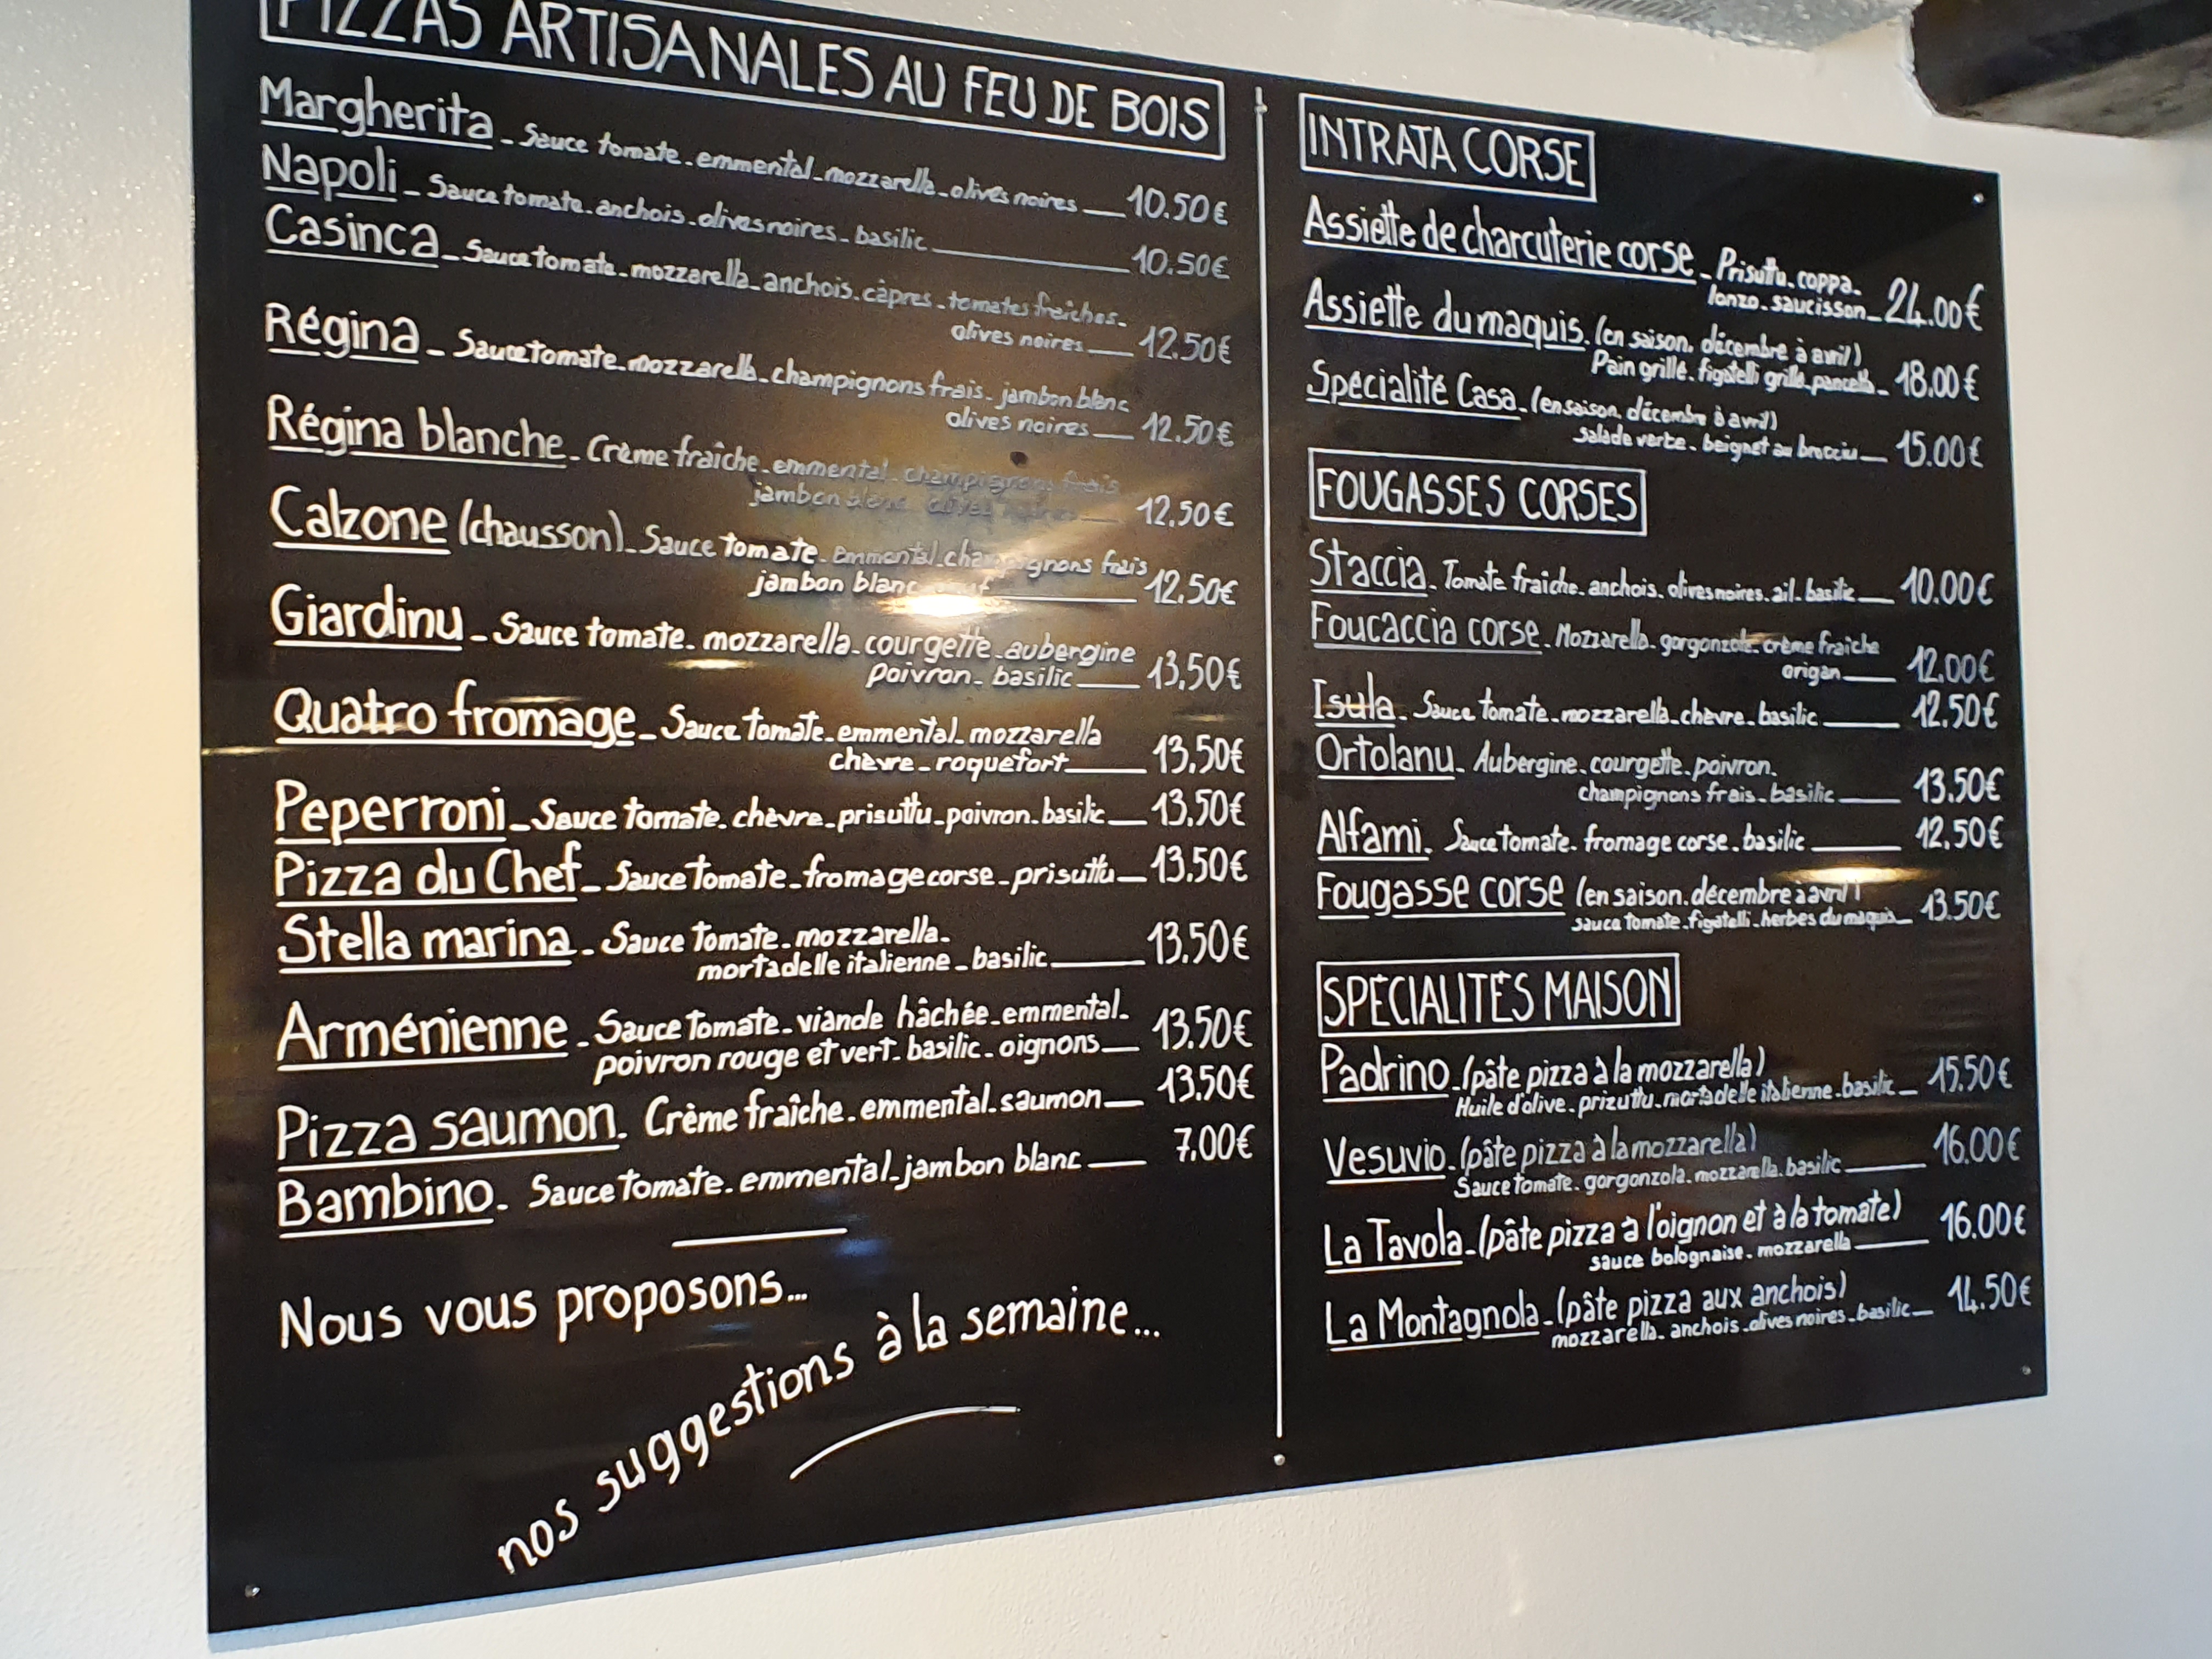 PIZZAS ARTISANALES AU FEU DE BOIS
Margherita - Sauce tomate - emmental - mozzarella - olives noires 10.50€
Napoli - Sauce tomate - anchois - olives noires - basilic 10.50€
Casinca - Sauce tomate - mozzarella - anchois - câpres - tomates fraîches -
olives noires 12.50€
Régina - Sauce tomate - mozzarella - champignons frais - jambon blanc
olives noires 12.50€
Régina blanche - Crème fraîche - emmental - champignons frais
jambon blanc - olives noires 12.50€
Calzone (chausson) - Sauce tomate - emmental - champignons frais
jambon blanc 12.50€
Giardinu - Sauce tomate - mozzarella - courgette - aubergine
poivron - basilic 13.50€
Quatro fromage - Sauce tomate - emmental - mozzarella
chèvre - roquefort 13.50€
Peperroni - Sauce tomate - chèvre - prisuttu - poivron - basilic 13.50€
Pizza du Chef - Sauce tomate - fromage corse - prisuttu 13.50€
Stella marina - Sauce tomate - mozzarella -
mortadelle italienne - basilic 13.50€
Arménienne - Sauce tomate - viande hâchée - emmental -
poivron rouge et vert - basilic - oignons 13.50€
Pizza saumon - Crème fraîche - emmental - saumon 13.50€
Bambino - Sauce tomate - emmental - jambon blanc 7.00€
Nous vous proposons...
nos suggestions à la semaine...
INTRATA CORSE
Assiette de charcuterie corse - Prisuttu - coppa -
lonzo - saucisson 24.00€
Assiette du maquis - (en saison, décembre à avril)
Pain grillé - figatelli grillé - pancetta 18.00€
Spécialité Casa - (en saison, décembre à avril)
salade verte - beignet au brocciu 15.00€
FOUGASSES CORSES
Staccia - Tomate fraiche - anchois - olives noires - ail - basilic 10.00€
Foucaccia corse - Mozzarella - gorgonzola - crème fraiche
origan 12.00€
Isula - Sauce tomate - mozzarella - chèvre - basilic 12.50€
Ortolanu - Aubergine - courgette - poivron -
champignons frais - basilic 13.50€
Alfami - Sauce tomate - fromage corse - basilic 12.50€
Fougasse corse (en saison, décembre à avril)
sauce tomate - figatelli - herbes du maquis 13.50€
SPÉCIALITÉS MAISON
Padrino - (pâte pizza à la mozzarella)
Huile d'olive - prizuttu - mortadelle italienne - basilic 15.50€
Vesuvio - (pâte pizza à la mozzarella)
Sauce tomate - gorgonzola - mozzarella - basilic 16.00€
La Tavola - (pâte pizza à l'oignon et à la tomate)
sauce bolognaise - mozzarella 16.00€
La Montagnola - (pâte pizza aux anchois)
mozzarella - anchois - olives noires - basilic 14.50€